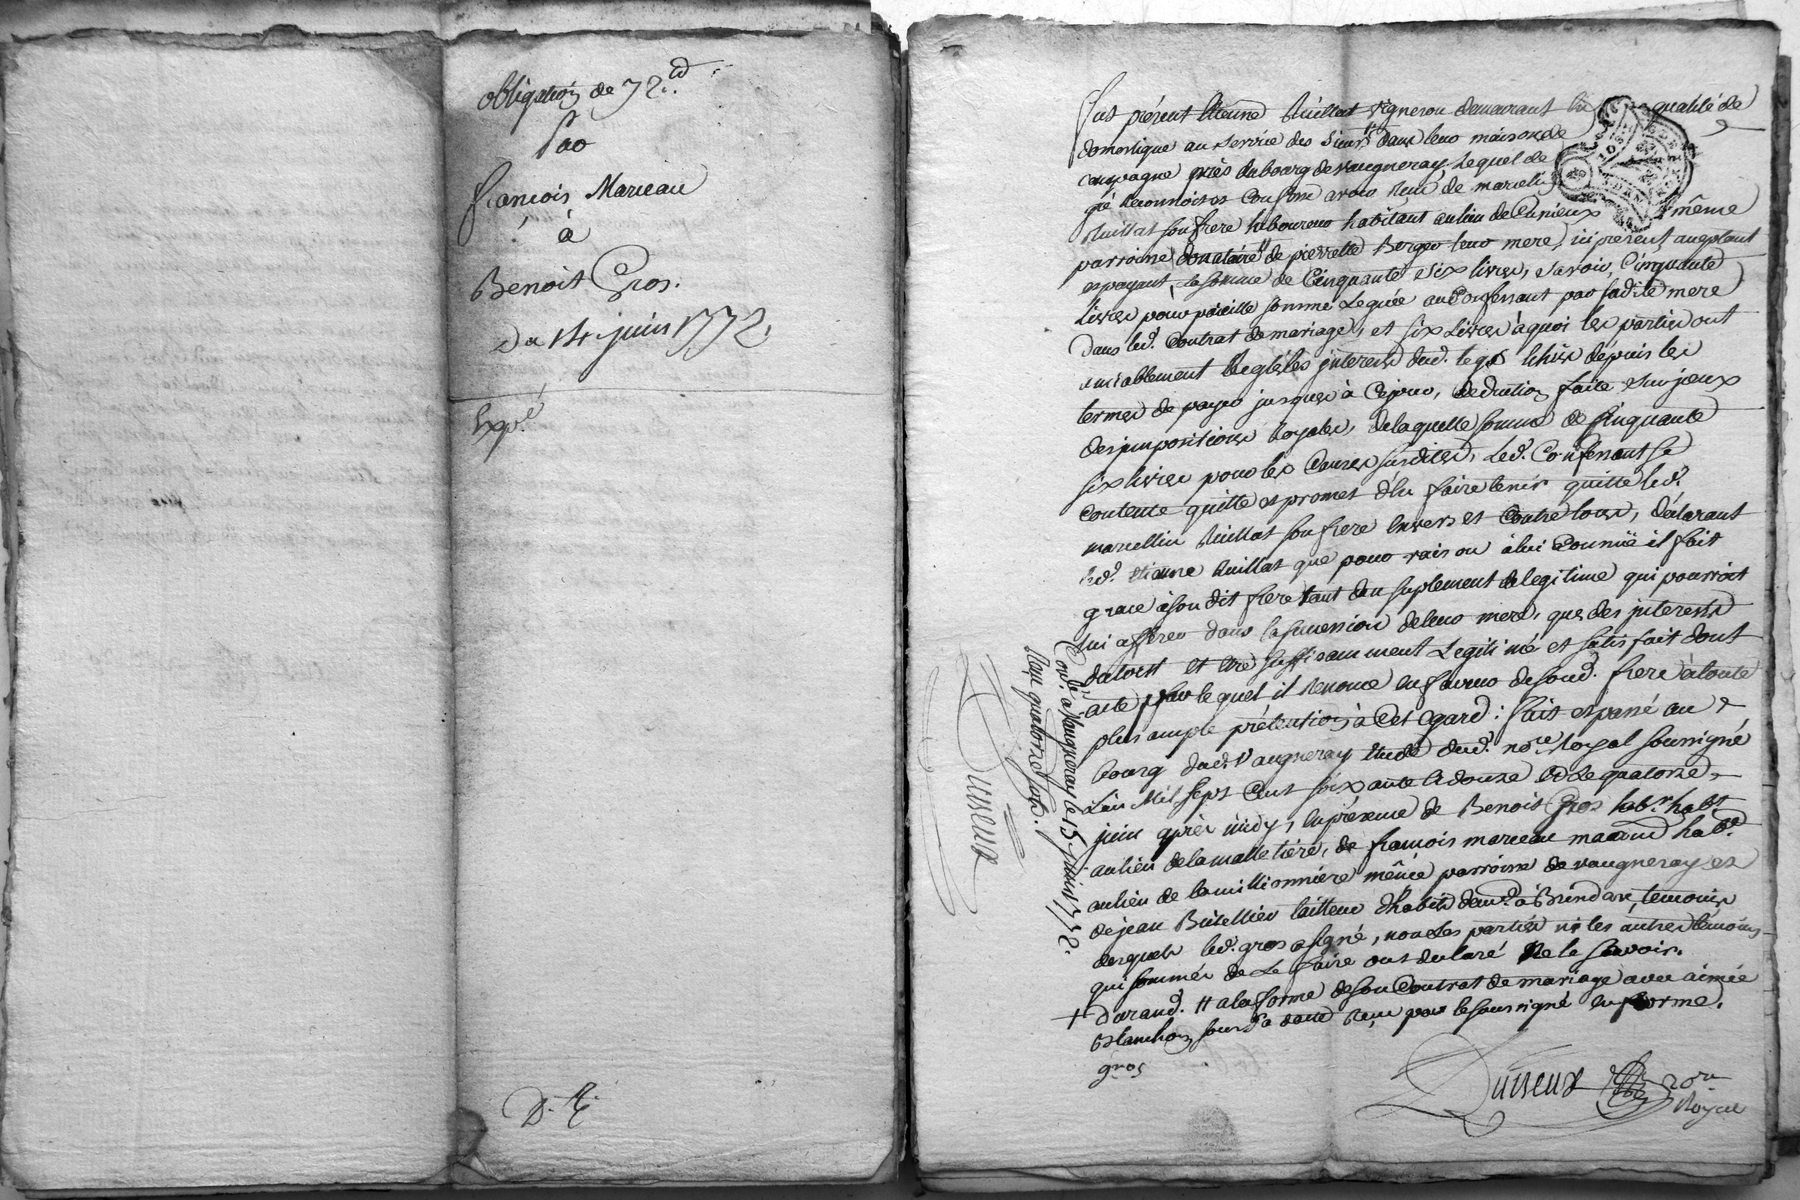 obligation de 72.lt
Par
françois Marieau
à
Benoit Gros.
Du 14 juin 1772.
Expé.
D. R.
fut présent Etienne Ruillat vigneron demeurant En qualité de
domestique au service des Sieurs dans leur maison de
campagne près du bourg de vaugneray, Lequel de
gré Reconnoit et Confesse avoir Reçu de marcelin
Ruillat son frere laboureur habitant au lieu de même
parroisse donataire de pierrette Berger leur mere, ici present acceptant
et payant, la somme de Cinquante six livres, savoir, Cinquante
livres pour pareille somme Leguée au Confessant par sadite mere
Dans led. Contrat de mariage, et six Livres à quoi les parties ont
amiablement Reglé les jnterets dud. legs Echus dépuis les
termes de payer jusques à Cejour, deduction faite sur jceux
des jmpositions Royales, de laquelle somme de Cinquante
six livres pour les Causes susdites, Led. Confessant se
contente quitte et promet d'en faire tenir quitte led.
marcellin Ruillat son frere Envers et Contre tous, déclarant
led. Etienne Ruillat que pour raison à lui Connuë il fait
grace à son dit frere tant du suplement de legitime qui pourroit
lui afferer dans la succession de leur mere, que des jnterests
d'icelui et être suffisamment Legitimé et satisfait dont
acte par lequel il Renonce en faveur de sond. frere à toute
plus ample prétention à Cet égard: fait et passé au
bourg dud. Vaugneray Etude dud. nore Royal soussigné
L'an Mil sept Cent soixante et douze Et Le quatorze
juin après midy, en présence de Benoit Gros labr. habt.
au lieu de la malletière, de françois marieau maçon habt.
au lieu de la millionnière même parroisse de vaugneray et
de jean Butellier tailleur d'habits demt. à Brindas, temoins
desquels led. gros a signé, non Les parties ni les autres témoins
qui sommés de Le faire ont declaré Ne le savoir.
+ Durand. # a la forme de son Contrat de mariage avec aimée
Blanchon sous sa datte Reçu par le soussigné En forme.
gros
Duvieux nore
Royal
Conlé. à Vaugneray le 15. juin 1772.
Reçu quatorze sols.
Duvieux